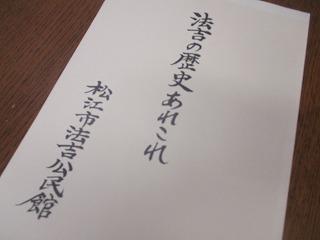 法吉の歴史あれこれ
松江市法吉公民館